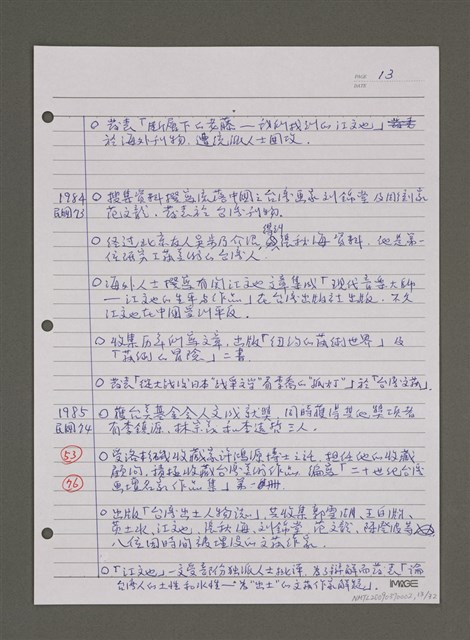 PAGE 13
DATE
○ 發表「斷層下的老藤—談所找到的江文也」
於海外刊物,遭統派人士圍攻。
1984 ○ 搜集資料撰寫流落中國之台灣畫家劉錦堂及雕刻家
民國73 范文龍,發表於台灣刊物。
○ 經過北京友人吳步乃介紹,得到張秋海資料,他是第一
位研究工藝美術的台灣人。
○ 海外人士撰寫有關江文也文章集成「現代音樂大師
—江文也的生平與作品」在台灣出版社出版,不久
江文也在中國獲訓平反。
○ 收集历年所写文章,出版「紐約的藝術世界」及
「藝術的冒險」二書。
○ 發表「從土战後日本"战争文学"看李喬的"孤灯"」於「台灣文藝」。
1985 ○ 獲台美基金会人文成就獎,同時獲得其他獎項者
民國74 有李鎮源,林宗義和李遠哲三人。
53 ○ 受洛杉磯收藏家許鴻源博士之託,担任他的收藏
顧問,積極收藏台灣美術作品,編寫「二十世紀台灣
76 畫壇名家作品集」第一冊。
○ 出版「台灣出土人物誌」,共收集郭雪湖,王白淵,
黃土水,江文也,張秋海,劉錦堂,范文龍,陳澄波等
八位因時間被埋没的文藝作家。
○「江文也」一文受島外独派人士批評,為了辯解而發表「論
台灣人的土性和水性—為"出土"的文藝作家解疑」。
IMAGE
NMTL20090570002, 13/42